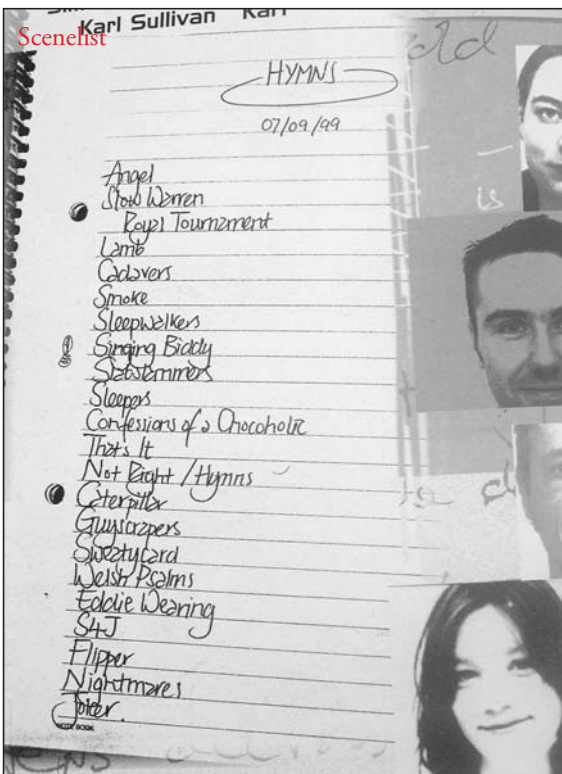 Karl Sullivan Karl
Scenelist
HYMNS
07/09/99
Angel
Stow Warren
Royal Tournament
Lamb
Cadavers
Smoke
Sleepwalkers
Singing Biddy
Slabslammers
Sleepers
Confessions of a Chocoholic
That's It
Not Right / Hymns
Caterpillar
Guyscrapers
Sweatycard
Welsh Psalms
Eddie Wearing
S4J
Flipper
Nightmares
Joker.
is